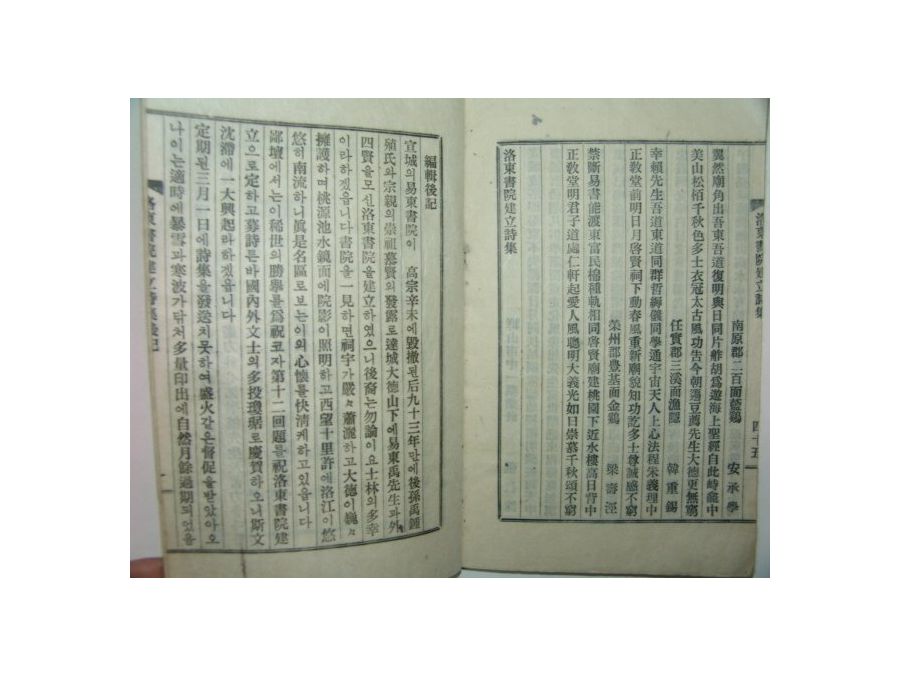 洛東書院建立詩集
四十五
南原郡二百面藍鷄 安承學
翼然廟角出吾東吾道復明與日同片舴胡爲遊海上聖經自此峙龍中
美山松栢千秋色多士衣冠太古風功告今朝籩豆薦先生大德更無窮
任實郡三溪面漁隱 韓重錫
幸賴先生吾道東道同群哲縟儀同學通宇宙天人上心法程朱義理中
正敎堂前明日月啓賢祠下動春風重新廟貌知功訖多士尊誠感不窮
榮州郡豊基面金鷄 梁壽涇
禁斷易書能渡東富民棉種軌祖同啓賢廟建桃園下近水樓高日背中
正敎堂明君子道處仁軒起愛人風聰明大義光如日崇慕千秋頌不窮
洛東書院建立詩集
編輯後記
宣城의易東書院이 高宗辛未에毀撤된后九十三年만에後孫禹鍾
殖氏와宗親의崇祖慕賢의發露로達城大德山下에易東禹先生과外
四賢을모신洛東書院을建立하였으니後裔는勿論이요士林의多幸
이라하겠읍니다書院을一見하면祠宇가嚴々蕭灑하고大德이巍々
擁護하며桃源池水鏡面에院影이照明하고西望十里許에洛江이悠
悠히南流하니眞是名區로보는이의心懷를快淸케하고있읍니다
鄙壇에서는이稀世의勝擧를爲祝코자第十二回題를祝洛東書院建
立으로定하고募詩튼바國內外文士의多投瓊琚로慶賀하오니斯文
沈滯에一大興起라하겠읍니다
定期된三月一日에詩集을發送치못하여盛火간은督促을받았아오
나이는適時에暴雪과寒波가닥처多量印出에自然月餘過期되었음
洛東書院建立詩集後記